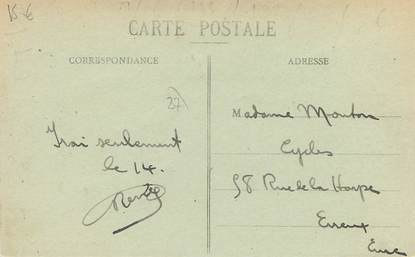 15 €
CARTE POSTALE
CORRESPONDANCE
ADRESSE
27
Irai seulement
le 14.
Madame Mouton
Cycles
58 Rue de la Harpe
Evreux
Eure